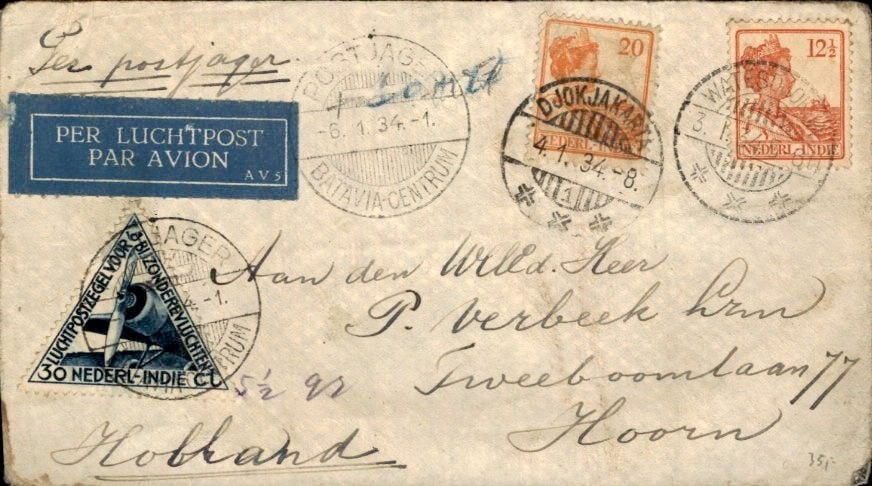 Per postjager
PER LUCHTPOST
PAR AVION
AV5
POSTJAGER
-6.1.34.-1.
BATAVIA-CENTRUM
20
NEDERL-INDIE
DJOKJAKARTA
4.1.34.-8.
1
12½
NEDERL-INDIE
WATES
3.1.
JAGER
-1.
TRUM
LUCHTPOSTZEGEL VOOR
BIJZONDERE VLUCHTEN
30 NEDERL-INDIE CT
5½ gr
Aan den WelEd. Heer
P. Verbeek Lzn
Tweeboomlaan 77
Hoorn
Holland
35,-